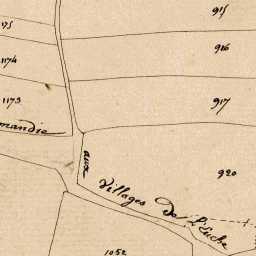 915
75
916
1174
1173
917
mandie
aux
Villages de L'Euche
920
1052